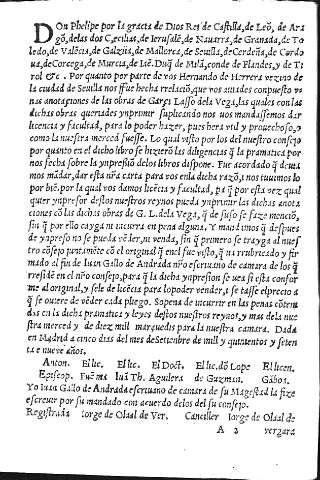 DOn Phelipe por la gracia de Dios Rei de Castilla, de Leõ, de Ara
gõ, de las dos Cecilias, de Ierusalẽ, de Nauarra, de Granada, de To
ledo, de Valẽcia, de Galizia, de Mallorca, de Seuilla, de Cerdeña, de Cordo
ua, de Corcega, de Murcia, de Iaẽ, Duq̃ de Milã, conde de Flandes, y de Ti
rol &c. Por quanto por parte de vos Hernando de Herrera vezino de
la ciudad de Seuilla nos fue hecha relaciõ, que vos auiades conpuesto v
nas anotaciones de las obras de Garci Lasso de la Vega, las quales con las
dichas obras queriades ynprimir suplicando nos os mandassemos dar
licencia y facultad, para lo poder hazer, pues hera vtil y prouechoso, o
como la nuestra merced fuesse. Lo qual visto por los del nuestro consejo
por quanto en el dicho libro se hizierõ las diligencias q̃ la pramatica por
nos fecha sobre la ynpresiõ de los libros dispone. Fue acordado q̃ deuia
mos mãdar, dar esta nr̃a carta para vos en la dicha razõ, i nos tuuimos lo
por biẽ. por la qual vos damos licẽcia y facultad, pa q̃ por esta vez qual
quier ynpresor destos nuestros reynos pueda ynprimir las dichas anota
ciones cõ las dichas obras de G. L. dela Vega, q̃ de suso se faze menciõ,
sin q̃ por ello cayga ni incurra en pena alguna. Y mandamos q̃ despues
de ynpreso no se pueda vẽder, ni venda, sin q̃ primero se trayga al nues
tro cõsejo juntamẽte cõ el original q̃ en el fue visto, q̃ va rrubricado y fir
mado al fin de Iuan Gallo de Andrada nr̃o escriuano de camara de los q̃
rresidẽ en el nr̃o consejo, para q̃ la dicha ynpresion se uea si està confor
me al original, y se le de licẽcia para lo poder vender, i se tasse el precio a
q̃ se ouiere de vẽder cada pliego. So pena de incurrir en las penas cõteni
das en la dicha pramatica y leyes destos nuestros reynos, y mas de la nue
stra merced y de diez mil marauedis para la nuestra camara. Dada
en Madrid a cinco dias del mes de Setenbre de mill y quinientos y seten
ta e nueve años.
Anton. El lic. El lic. El Doct. El lic. dõ Lope El licen.
Episcop. Fuẽ ma Iuã Th. Aguilera de Guzman. Gãboa.
Yo Iuan Gallo de Andrada escriuano de camara de su Magestad la fize
escreuir por su mandado con acuerdo de los del su consejo.
Registrada Iorge de Olaal de Ver. Canciller Iorge de Olaal de
A 2 vergara